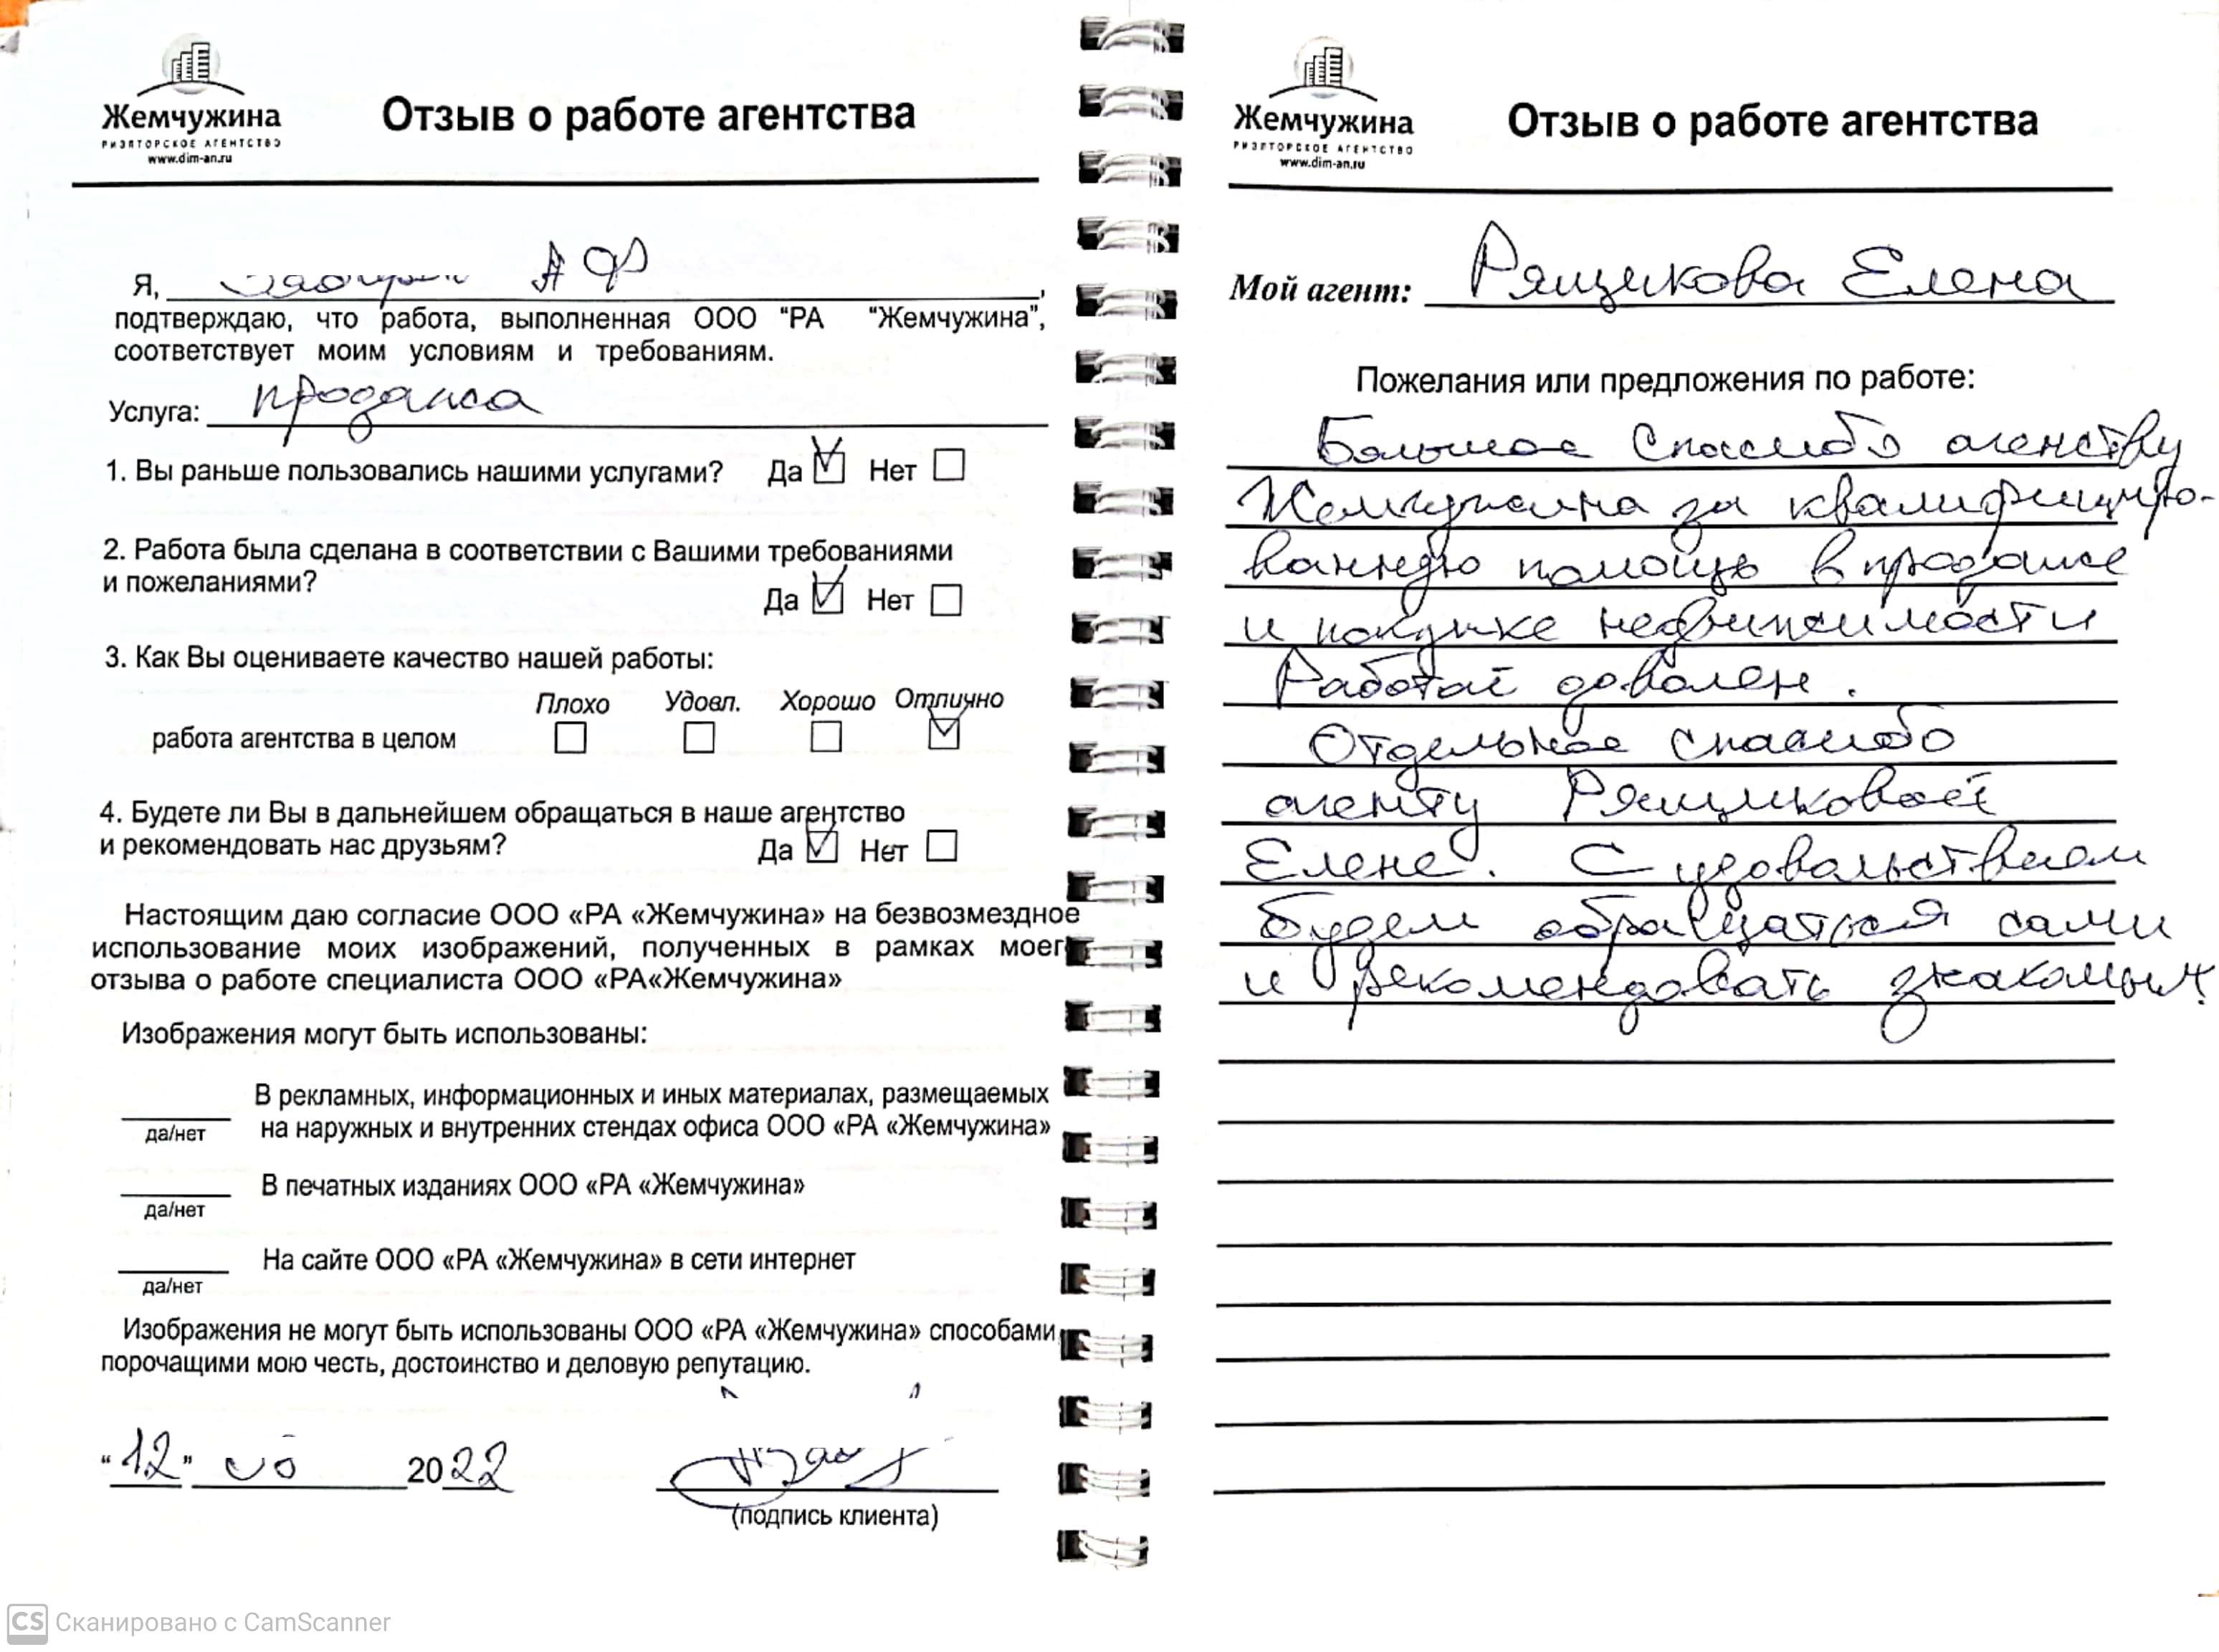 Жемчужина
РИЭЛТОРСКОЕ АГЕНТСТВО
www.dim-an.ru
Отзыв о работе агентства
Я, А Ф,
подтверждаю, что работа, выполненная ООО "РА "Жемчужина",
соответствует моим условиям и требованиям.
Услуга: продажа
1. Вы раньше пользовались нашими услугами? Да Нет
2. Работа была сделана в соответствии с Вашими требованиями
и пожеланиями?
Да Нет
3. Как Вы оцениваете качество нашей работы:
Плохо Удовл. Хорошо Отлично
работа агентства в целом
4. Будете ли Вы в дальнейшем обращаться в наше агентство
и рекомендовать нас друзьям? Да Нет
Настоящим даю согласие ООО «РА «Жемчужина» на безвозмездное
использование моих изображений, полученных в рамках моег
отзыва о работе специалиста ООО «РА«Жемчужина»
Изображения могут быть использованы:
В рекламных, информационных и иных материалах, размещаемых
да/нет на наружных и внутренних стендах офиса ООО «РА «Жемчужина»
В печатных изданиях ООО «РА «Жемчужина»
да/нет
На сайте ООО «РА «Жемчужина» в сети интернет
да/нет
Изображения не могут быть использованы ООО «РА «Жемчужина» способами
порочащими мою честь, достоинство и деловую репутацию.
"12" 2022
(подпись клиента)
Жемчужина
РИЭЛТОРСКОЕ АГЕНТСТВО
www.dim-an.ru
Отзыв о работе агентства
Мой агент: Рящикова Елена
Пожелания или предложения по работе:
Большое спасибо агенству
Жемчужина за квалифициро-
ванную помощь в продаже
и покупке недвижимости
Работой доволен.
Отдельное спасибо
агенту Рящиковой
Елене. С удовольствием
будем обращаться сами
и рекомендовать знакомым.
CS Сканировано с CamScanner